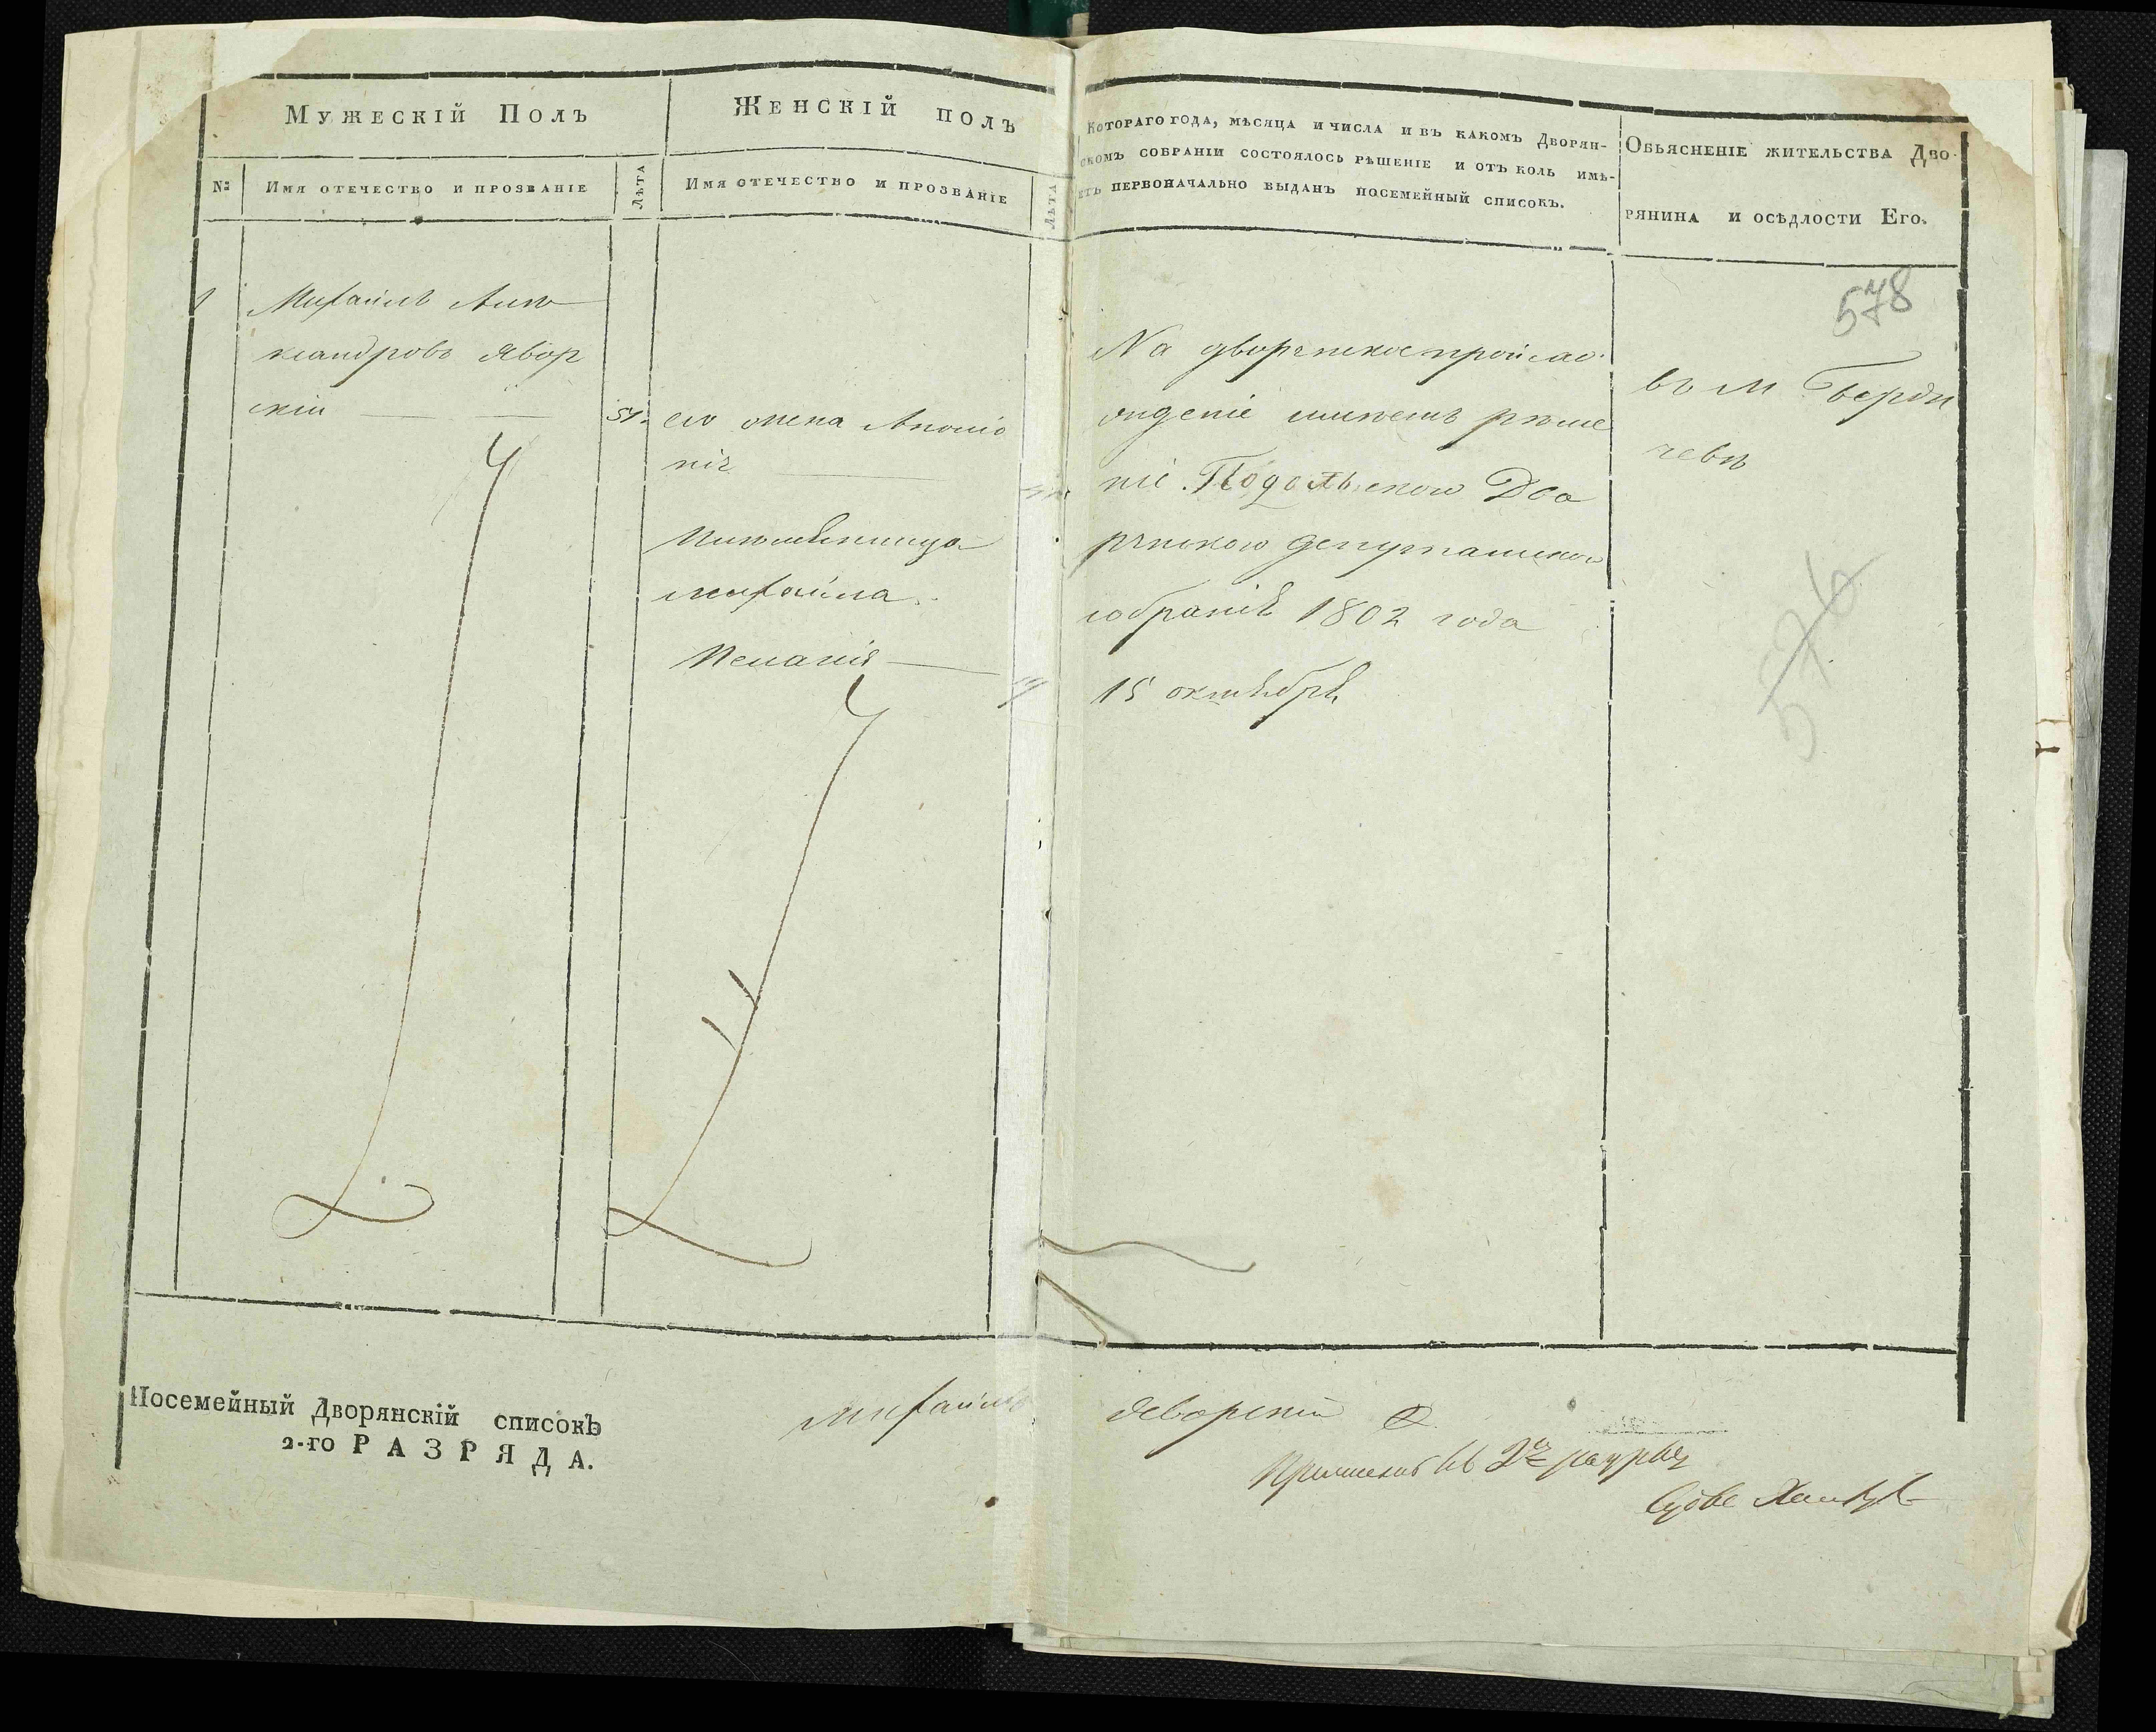 Мужескій Полъ
Женскій полъ
Котораго года, мѣсяца и числа и въ какомъ Дворян-
скомъ собраніи состоялось рѣшеніе и отъ коль имѣ-
етъ первоначально выданъ посемейный списокъ.
Обьясненіе жительства Дво-
рянина и осѣдлости Его.
№
Имя отечество и прозваніе
Лѣта
Имя отечество и прозваніе
Лѣта
578
1
Михаилъ Алек
сандровъ Явор
скій
51.
его жена
нія
Михаила
На дворянское произхо
жденіе имѣетъ рѣше
ніе Подольского Дво
рянского депутатского
собранія 1802 года
15 октября
въ М Берди
чевѣ
576
Посемейный Дворянскій списокъ
2-го РАЗРЯДА.
Михаилъ Яворскій